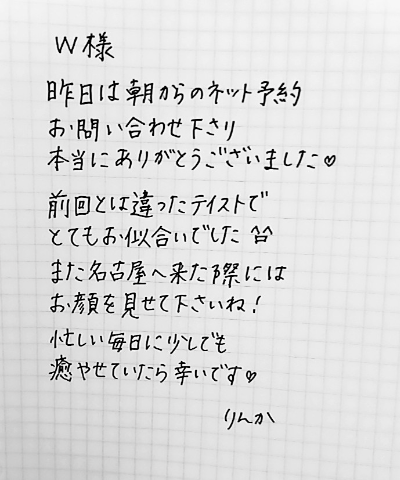 W様
昨日は朝からのネット予約
お問い合わせ下さり
本当にありがとうございました♡
前回とは違ったテイストで
とてもお似合いでした ^^
また名古屋へ来た際には
お顔を見せて下さいね!
忙しい毎日に少しでも
癒やせていたら幸いです♡
りんか